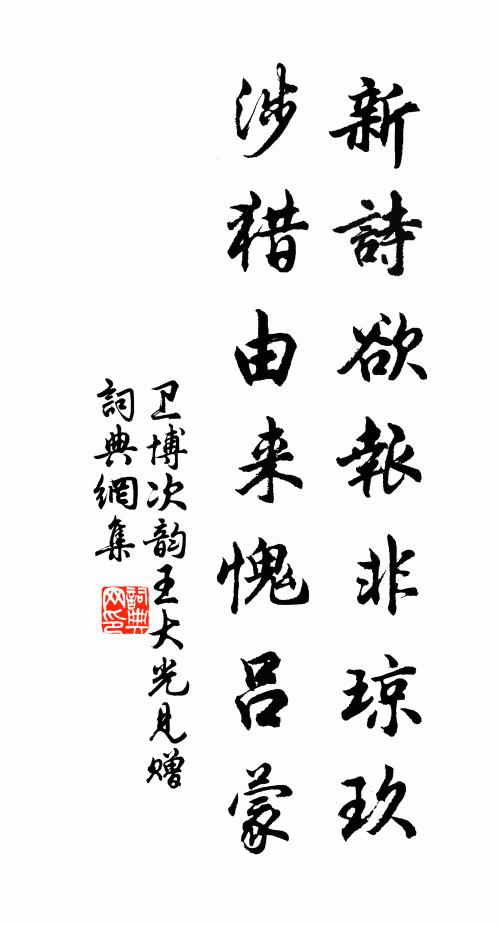 新詩欲報非琼玖
涉猎由来愧吕蒙
卫博次韵王大光見赠
詞典網集
詞典网印